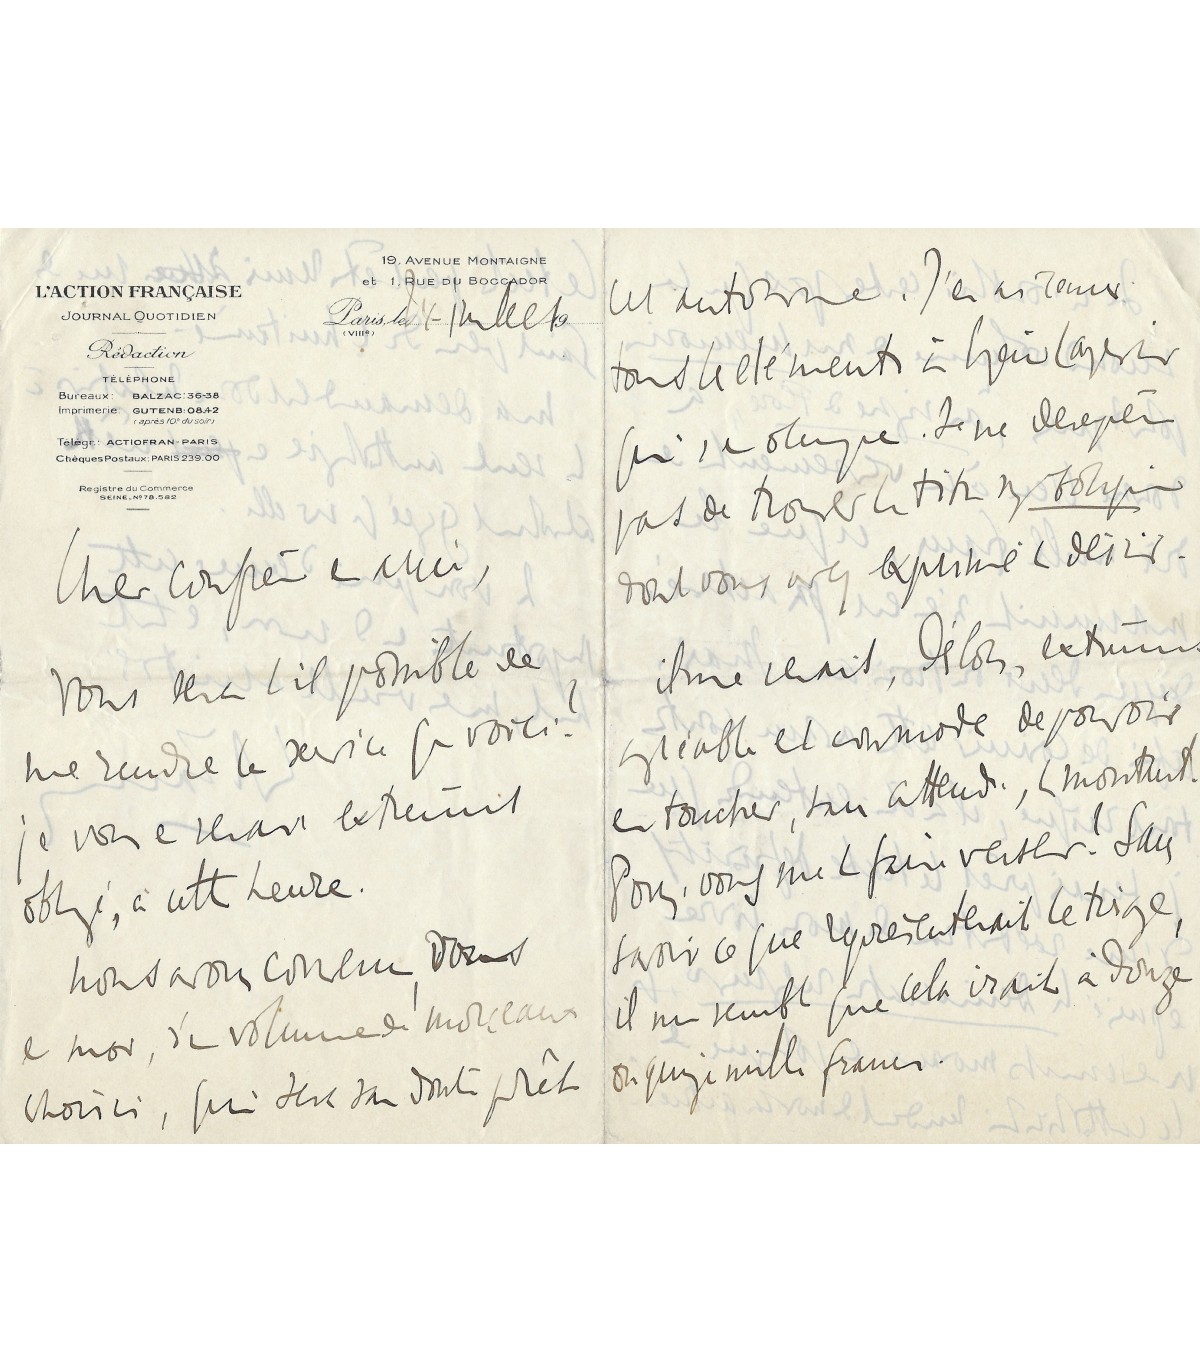 L'ACTION FRANÇAISE
JOURNAL QUOTIDIEN
Rédaction
TÉLÉPHONE
Bureaux: BALZAC: 36-38
Imprimerie: GUTENB: 08.42
(après 10h du soir)
Télégr.: ACTIOFRAN-PARIS
Chèques Postaux: PARIS 239.00
Registre du Commerce
SEINE. No 78.582
19, AVENUE MONTAIGNE
et 1, RUE DU BOCCADOR
Paris, le juillet 19
(VIIIe)
Cher confrère et ami,
Vous serait il possible de
me rendre le service que voici?
je vous en serais extrêmement
obligé, à cette heure.
nous avons convenu, vous
et moi, d'un volume de morceaux
choisis, qui sera sans doute prêt
cet automne. J'en ai remis
tous les éléments à
qui s'en occupe. Je ne désespère
pas de trouver le titre
dont vous avez exprimé le désir.
il me serait, dès lors, extrêmement
agréable et commode de pouvoir
en toucher, sans attendre, le montant.
Pouvez vous me le faire verser? Sans
savoir ce que représenterait le tirage,
il me semble que cela irait à douze
ou quinze mille francs.